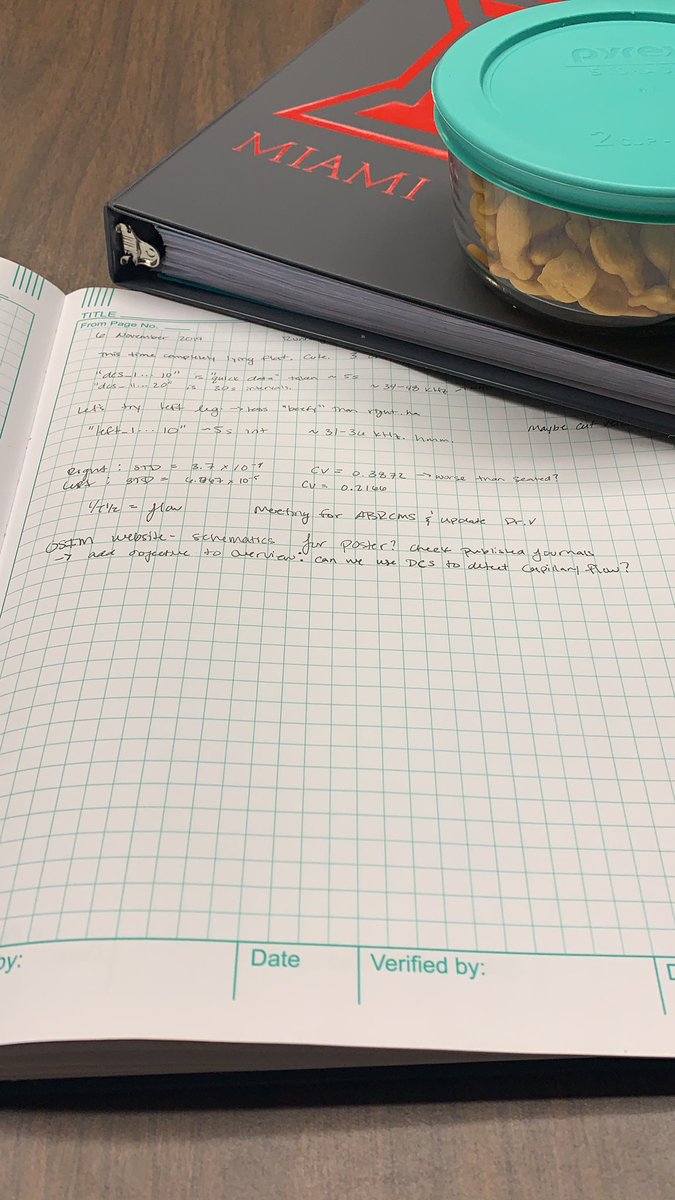 MIAMI
pyrex
2 CUP
TITLE
From Page No.
6 November 2019
This time completely lying flat. Cute. 3
"dcs_1...10" is "quick data" taken ~5s
"dcs_11...20" is 30s intervals. ~34-43 kHz
Let's try left leg → less "beefy" than right. ha
"left_1...10" ~5s int ~31-36 kHz. hmm.
Maybe cut
right: STD = 3.7 × 10 CV = 0.3872 → worse than seated?
left: STD = × 10 CV = 0.2166
= flow Meeting for AB2CMS & update Dr. V
website - schematics for poster? check published journals
→ add objective to overview: can we use DCS to detect capillary flow?
by:
Date
Verified by:
D